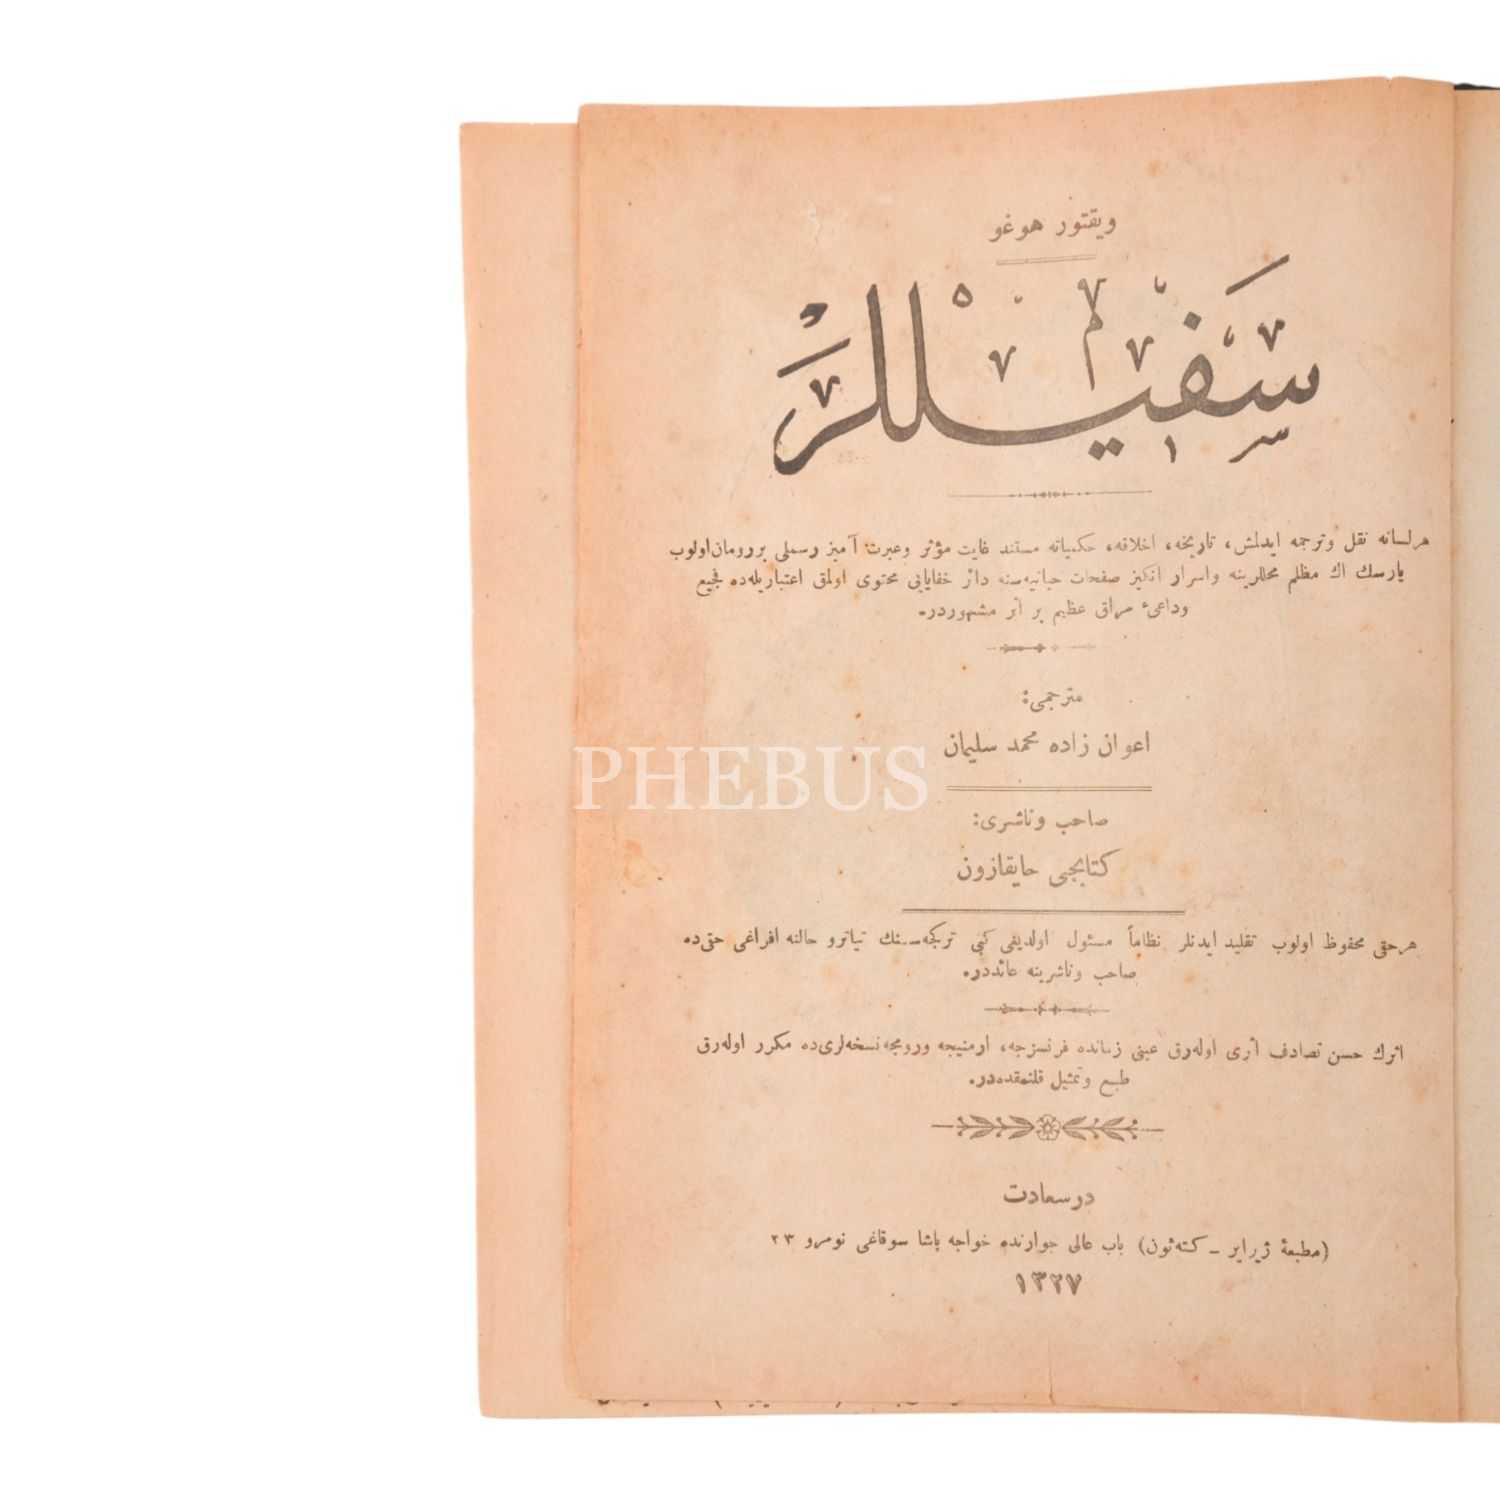 ويقتور هوغو
سفيللر
هرلسانه نقل وترجمه ايدلمش، تاريخه، اخلاقه، حكمياته مستند غايت مؤثر وعبرت آميز رسملى بررومان اولوب
پارسك اك مظلم محللرينه واسرار انكيز صفحات حياتيه سنه دائر خفايايى محتوى اولمق اعتباريله ده فجيع
وداعىء مراق عظيم بر اثر مشهوردر.
مترجمى:
اعوان زاده محمد سليمان
PHEBUS
صاحب وناشرى:
كتابجى حايقازون
هرحقى محفوظ اولوب تقليد ايدنلر نظاماً مسئول اولديغى كبى تركجه سنك تياترو حالنه افراغى حقى ده
صاحب وناشرينه عائددر.
اثرك حسن تصادف اثرى اوله رق عينى زمانده فرنسزجه، ارمنيجه ورومجه نسخه لرى ده مكرر اوله رق
طبع وتمثيل قلنمقده در.
درسعادت
(مطبعۀ ژيراير ــ كته ئون) باب عالى جوارنده خواجه پاشا سوقاغى نومرو ٢٣
١٣٢٧